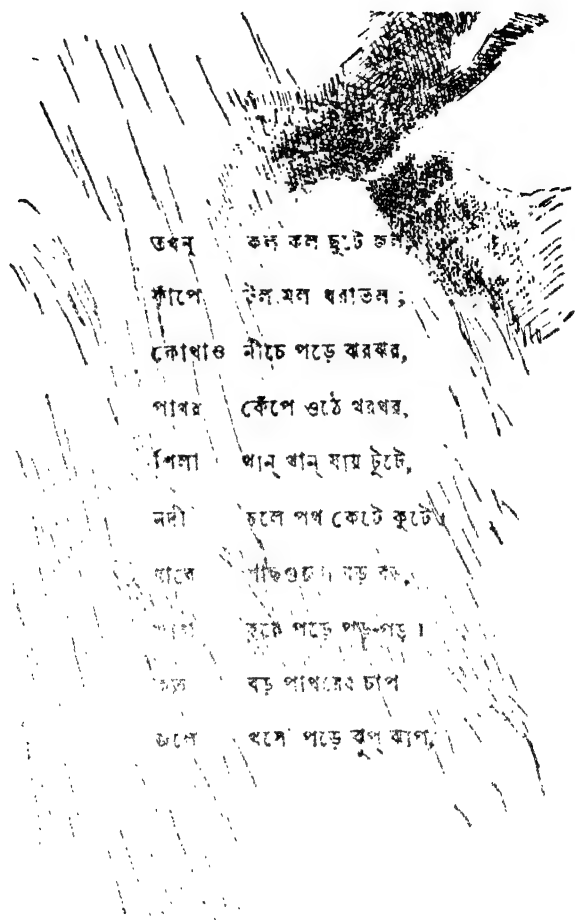 তখন্ কল কল ছুটে জল,
কাঁপে টল মল ধরাতল;
কোথাও নীচে পড়ে ঝরঝর,
পাথর কেঁপে ওঠে থরথর,
শিলা খান্ খান্ যায় টুটে,
নদী চলে পথ কেটে কুটে।
ধারে গাছগুলো বড় বড়,
হয়ে পড়ে পড়-পড়।
কত বড় পাথরের চাপ
জলে খসে পড়ে ঝুপ্ ঝাপ,